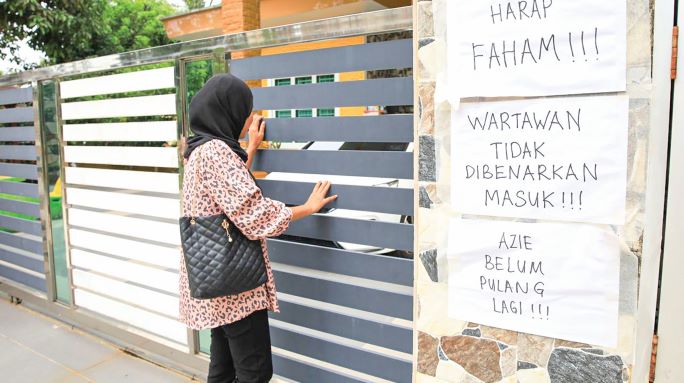 HARAP
FAHAM!!!
WARTAWAN
TIDAK
DIBENARKAN
MASUK!!!
AZIE
BELUM
PULANG
LAGI!!!